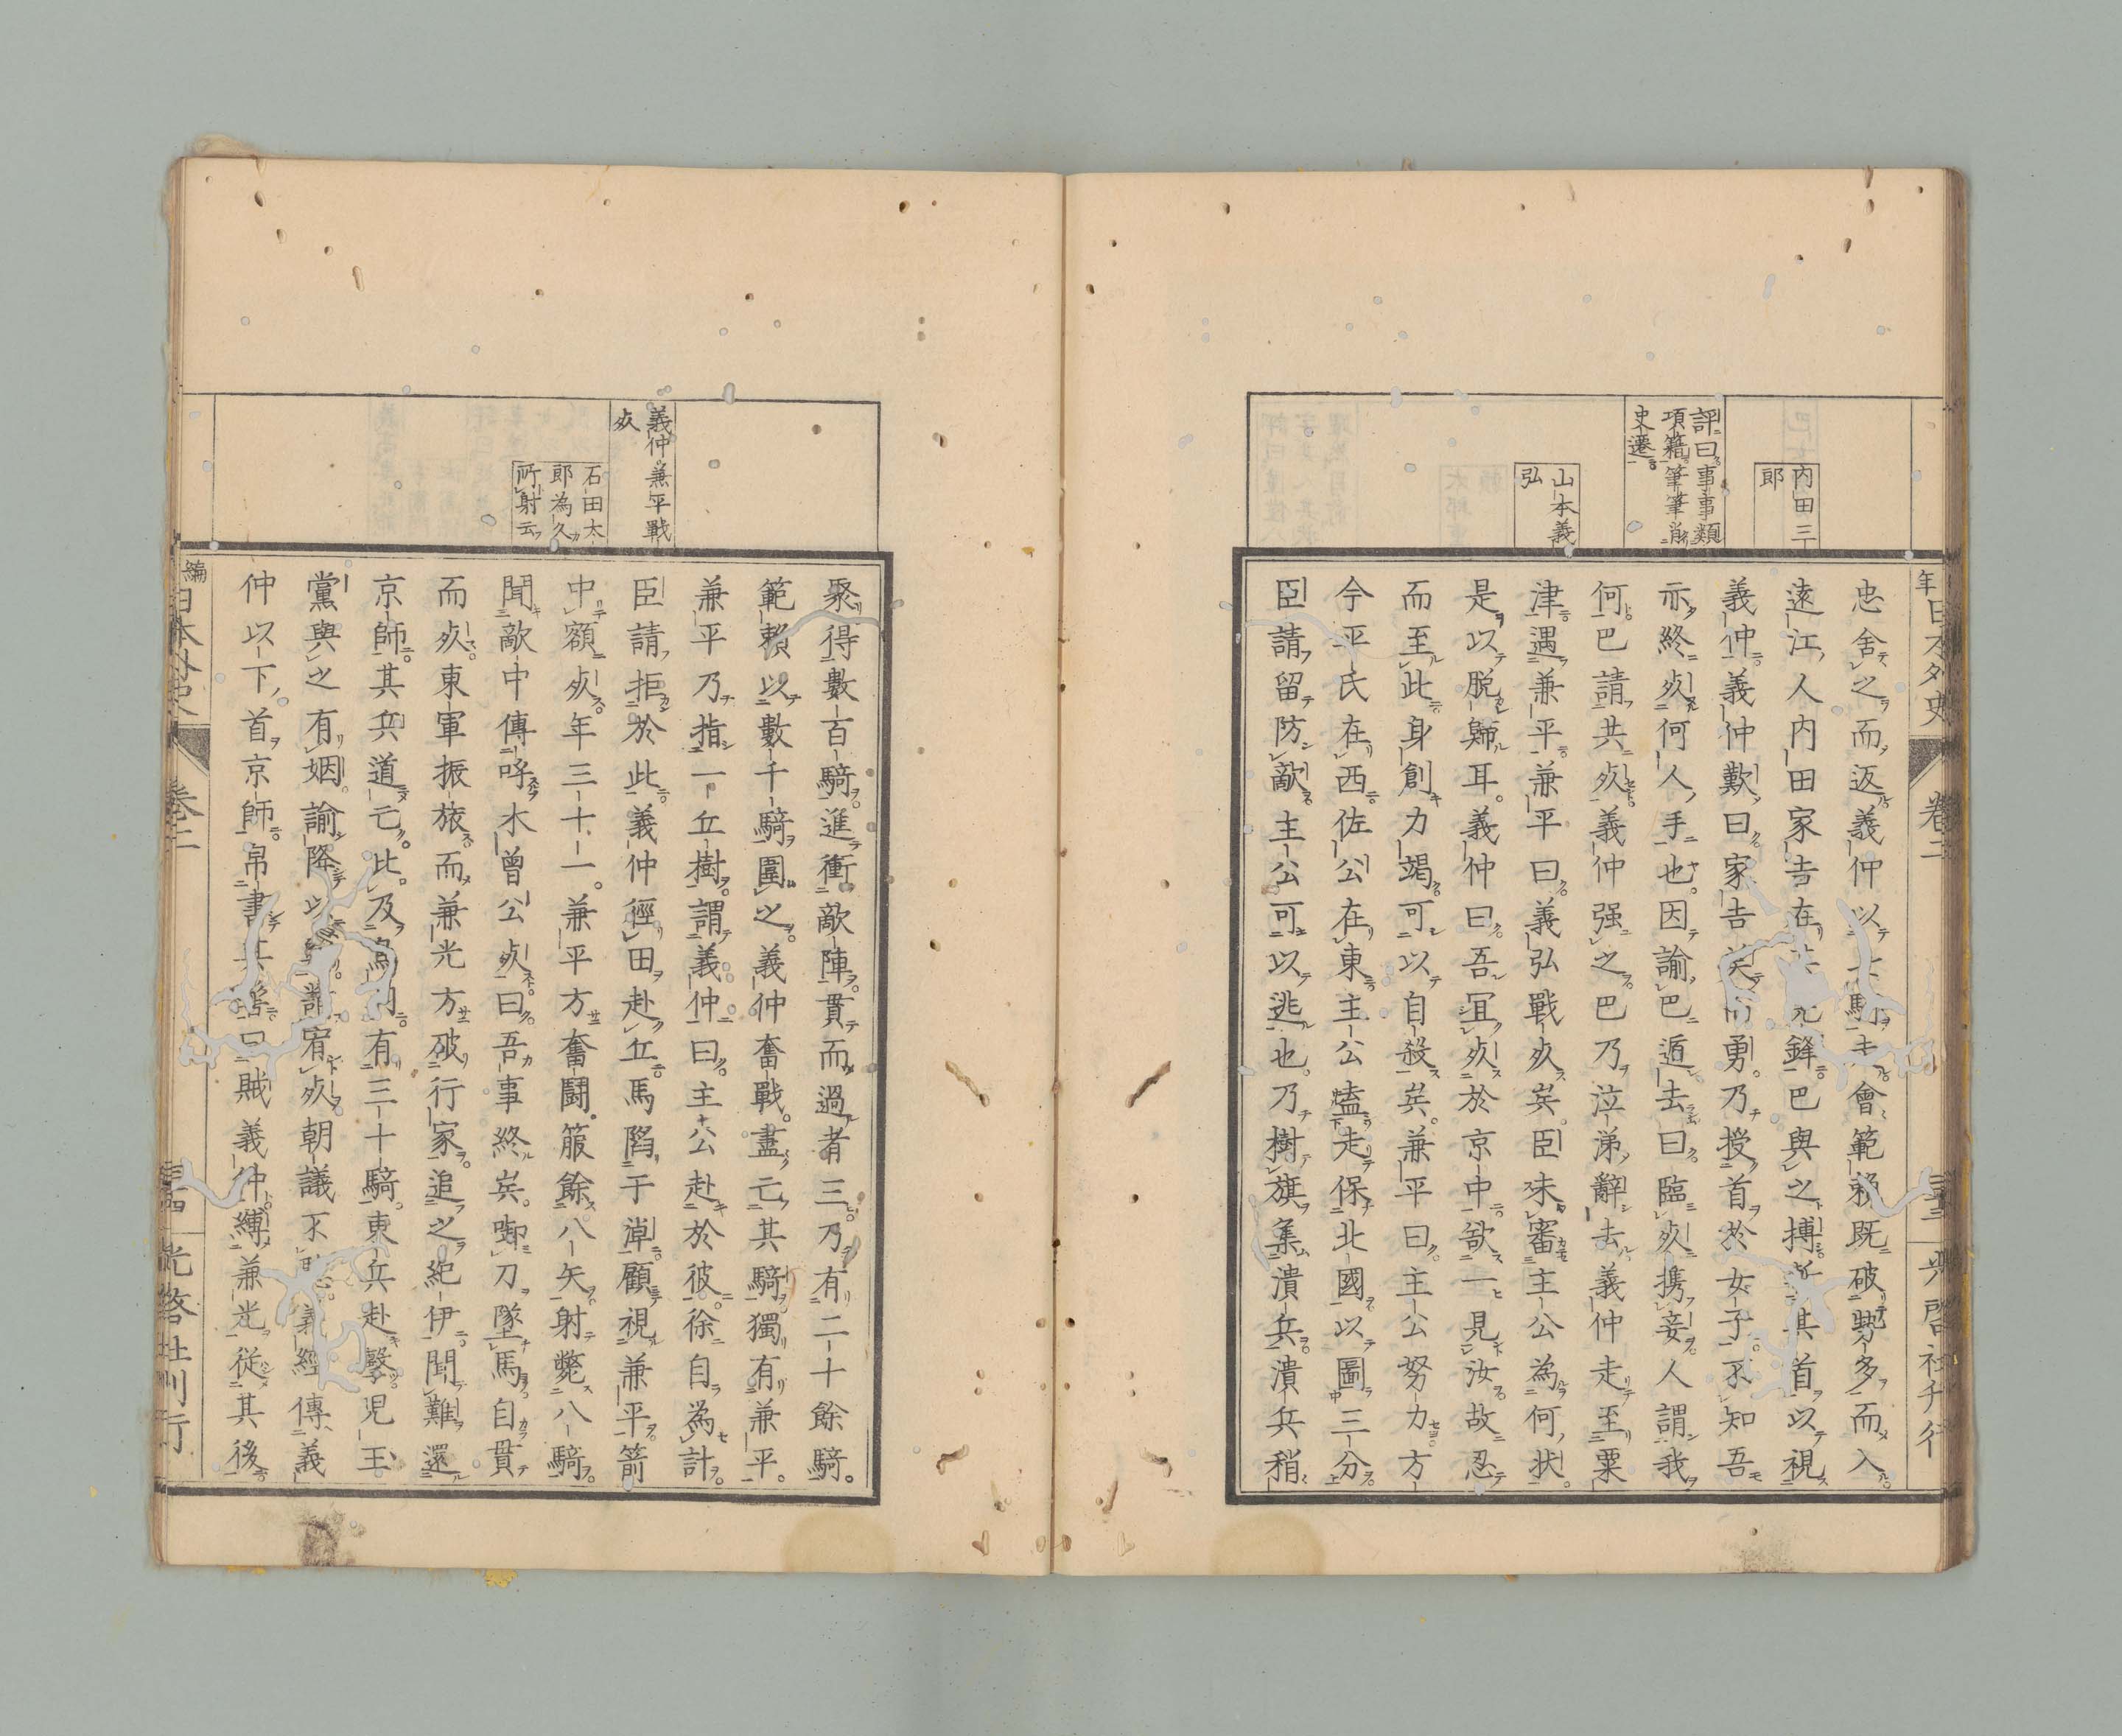 内田三
郎
評曰事事類
項籍筆筆肖
史遷
山本義
弘
忠舍之而返義仲以七騎走會範賴既破勢多而入
遠江人内田家吉在先鋒巴與之搏斬其首以視
義仲義仲歎曰家吉美而勇乃授首於女子不知吾
亦終死何人手也因諭巴遁去曰臨死攜妾人謂我
何巴請共死義仲强之巴乃泣涕辭去義仲走至粟
津遇兼平兼平曰義弘戰死矣臣未審主公為何狀
是以脱歸耳義仲曰吾冝死於京中欲一見汝故忍
而至此身創力竭可以自殺矣兼平曰主公努力方
今平氏在西佐公在東主公盍走保北國以圖三分
臣請留防敵主公可以逃也乃樹旗集潰兵潰兵稍
年日本外史 卷二 光啓社刊行
義仲兼平戰
死
石田太
郎為久
所射云
聚得數百騎進衝敵陣貫而過者三乃有二十餘騎
範賴以數千騎圍之義仲奮戰盡亡其騎獨有兼平
兼平乃指一丘樹謂義仲曰主公赴於彼徐自為計
臣請拒於此義仲徑田赴丘馬陷于淖顧視兼平箭
中額死年三十一兼平方奮鬪箙餘八矢射斃八騎
聞敵中傳呼木曾公死曰吾事終矣啣刀墜馬自貫
而死東軍振旅而兼光方破行家追之紀伊聞難還
京師其兵道亡比及鳥羽有三十騎東兵赴擊兒玉
黨與之有姻諭降以請宥死朝議不義經傳義
仲以下首京師帛書其曰賊義仲縛兼光從其後
編日本外史 卷二 光啓社刊行